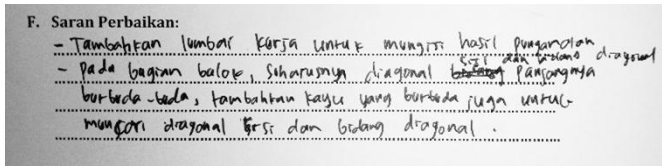 F. Saran Perbaikan:
- Tambahkan lembar kerja untuk mengisi hasil pengamatan
- Pada bagian balok, seharusnya diagonal sisi dan bidang diagonal panjangnya
berbeda-beda, tambahkan kayu yang berbeda juga untuk
mencari diagonal sisi dan bidang diagonal.